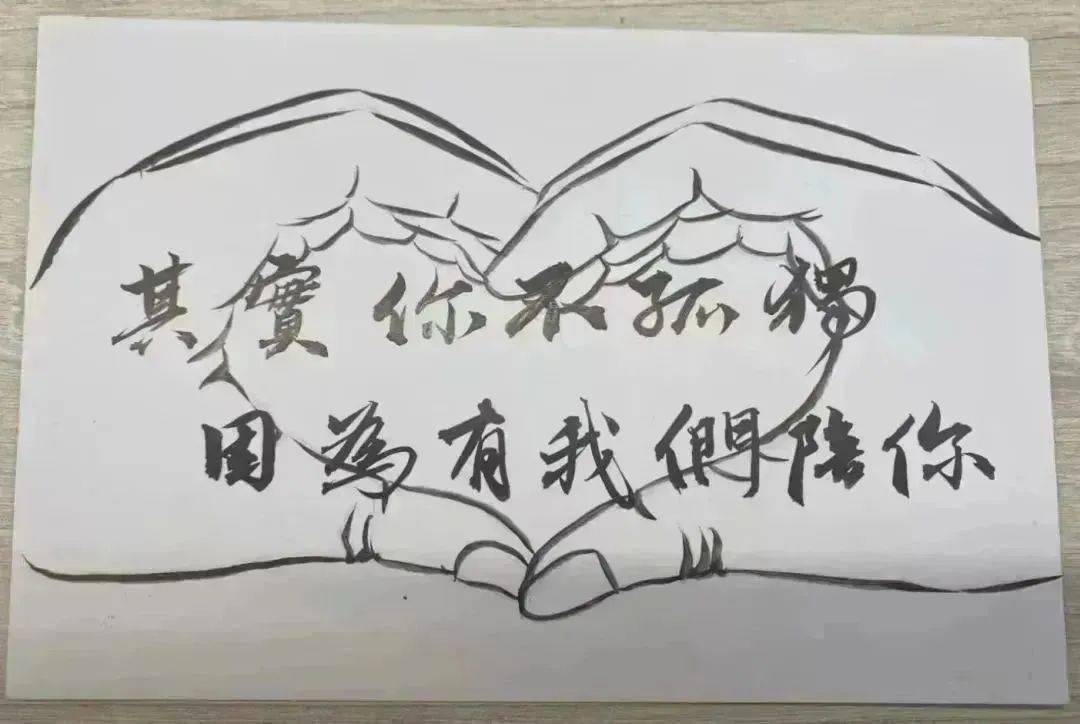 其實你不孤獨
因為有我們陪你